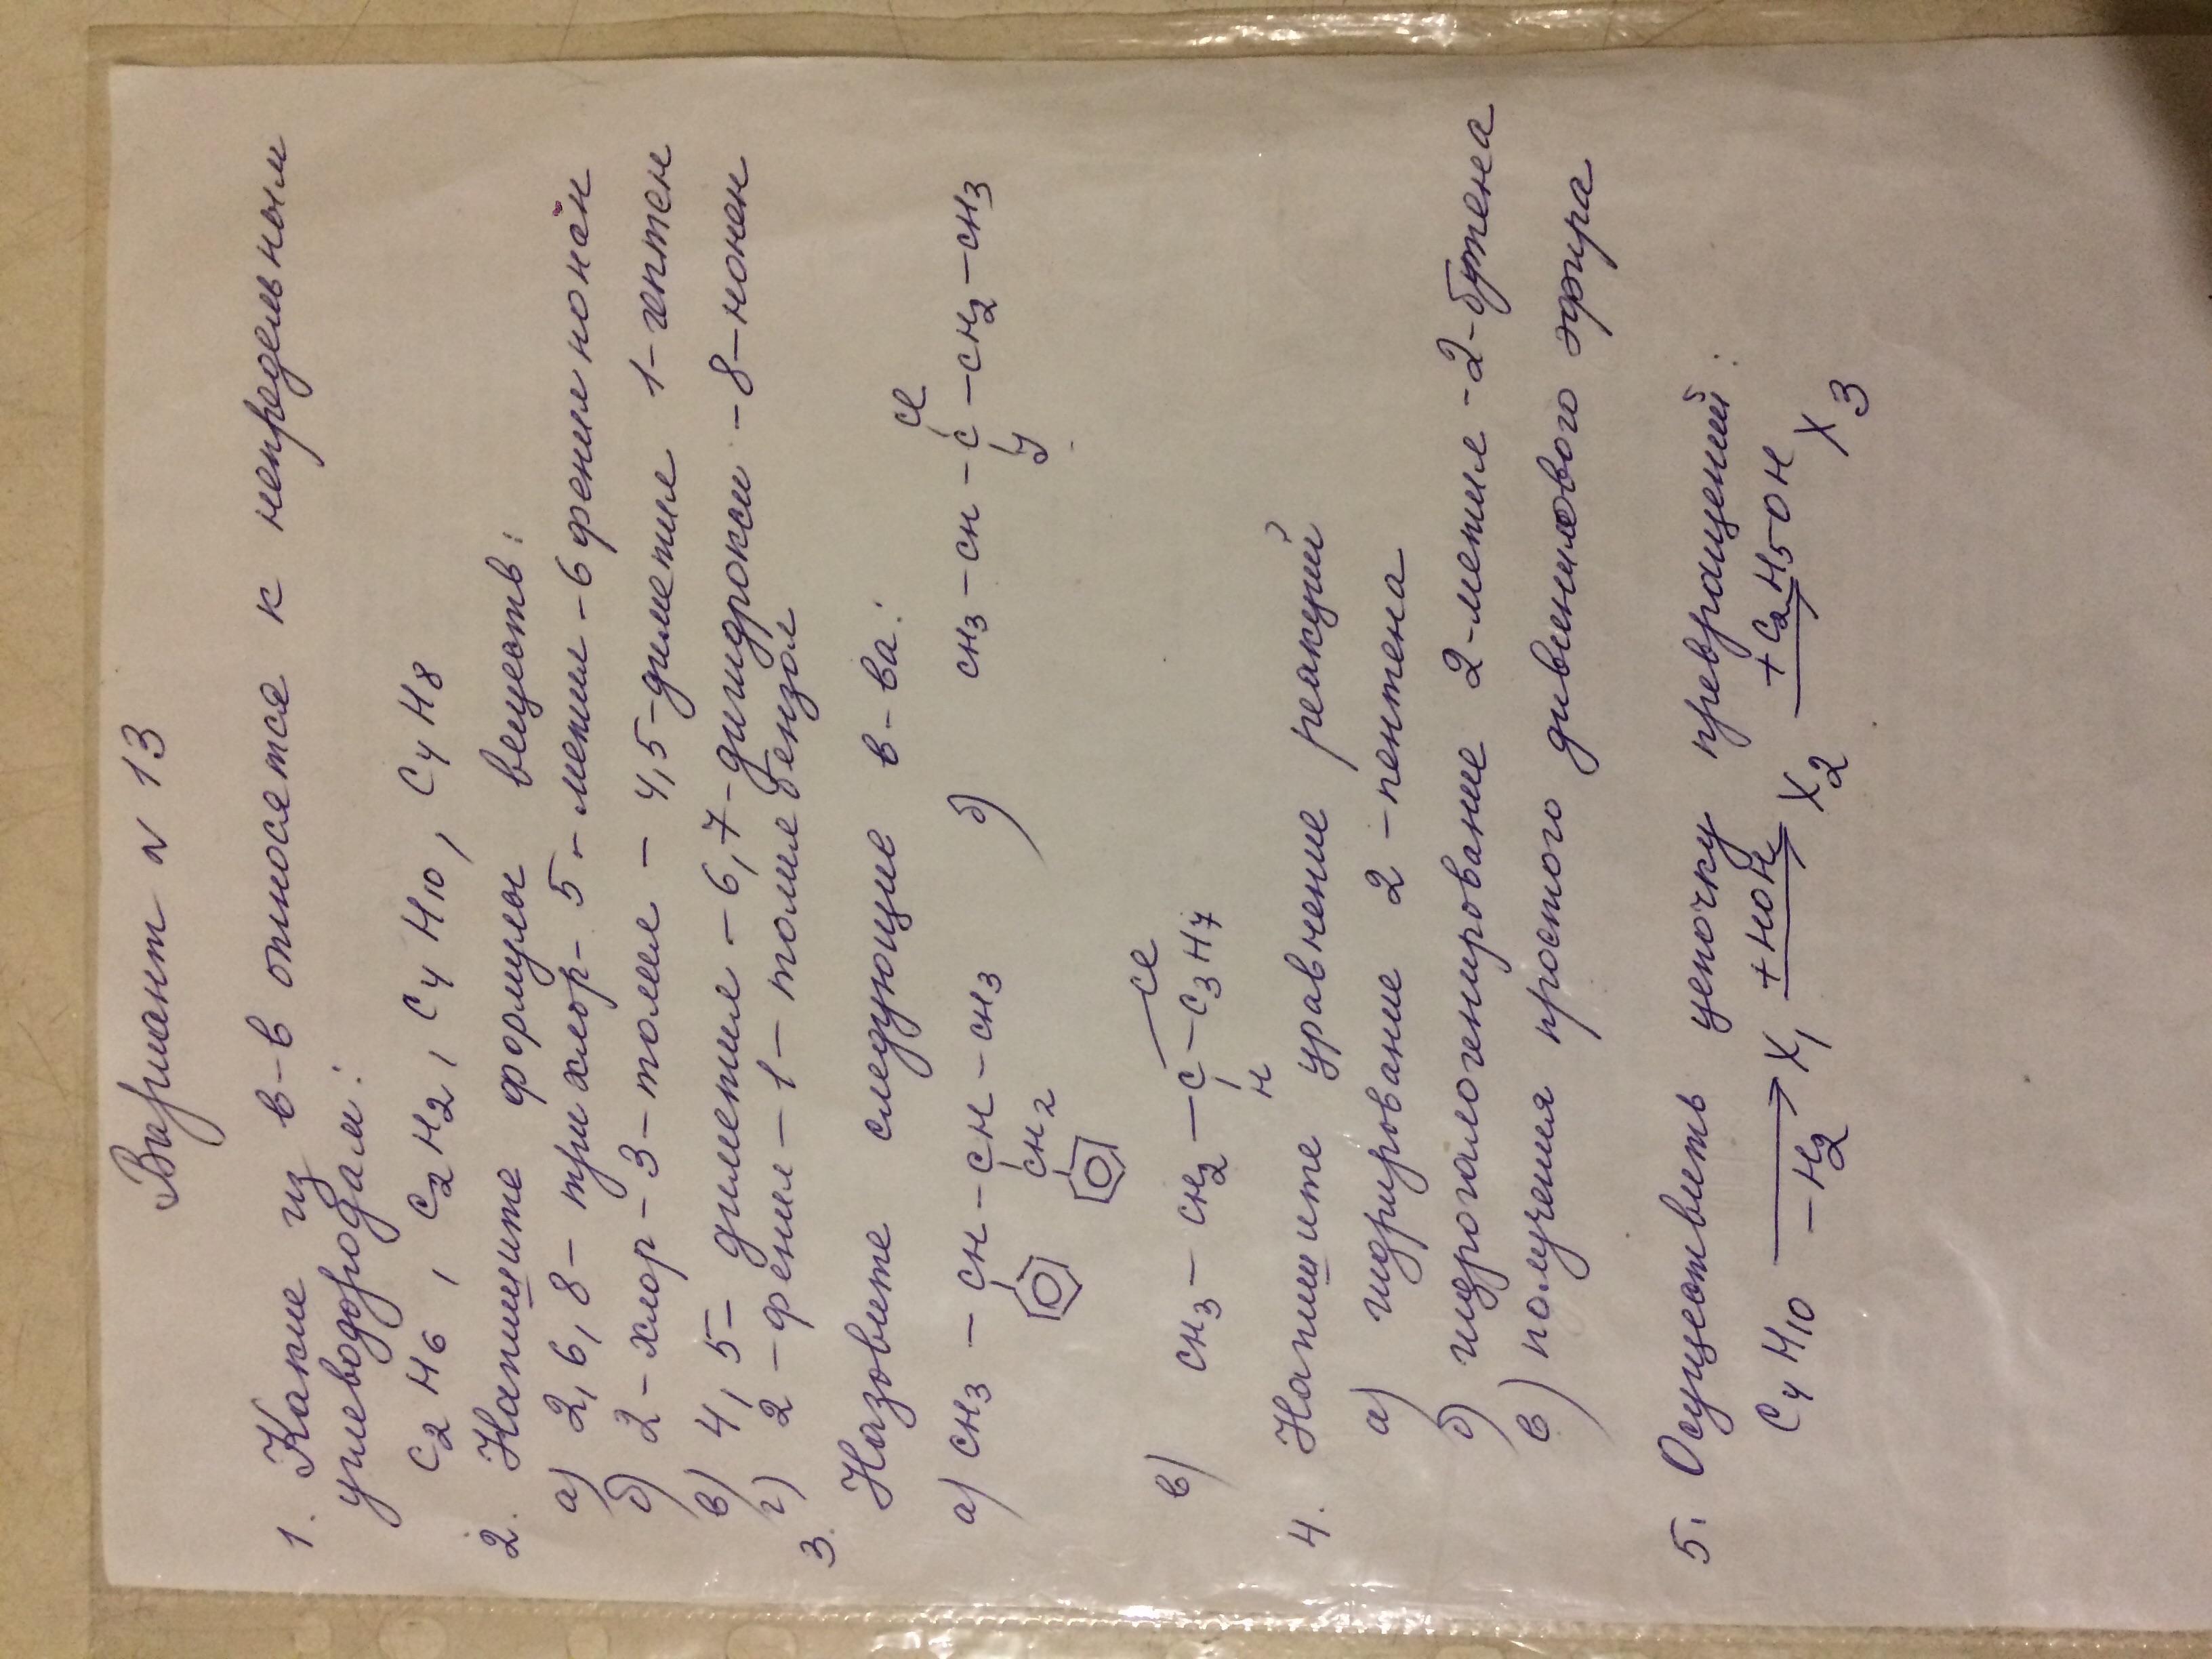 Вариант N 13
1. Какие из в-в относятся к непредельным
углеводородам:
C2H6, C2H2, C4H10, C4H8
2. Напишите формулы веществ:
а) 2,6,8- трихлор- 5- метил-6 фенил нонан
б) 2-хлор-3-толил - 4,5-диметил 1-гептен
в) 4,5- диметил-6,7-дигидрокси -8-нонен
г) 2-фенил-1- толилбензол
3. Назовите следующие в-ва:
а) CH3 - CH - CH - CH3 б) CH3 - CH - C - CH2 - CH3
Cl
J
CH2
в) CH3 - CH2 - C - C3H7
Cl
H
4. Напишите уравнение реакций
а) гидрирование 2-пентена
б) гидрогалогенирование 2-метил-2-бутена
в) получения простого дивинилового эфира
5. Осуществить цепочку превращений:
C4H10 → X1 +HOH → X2 +C2H5OH → X3
-H2